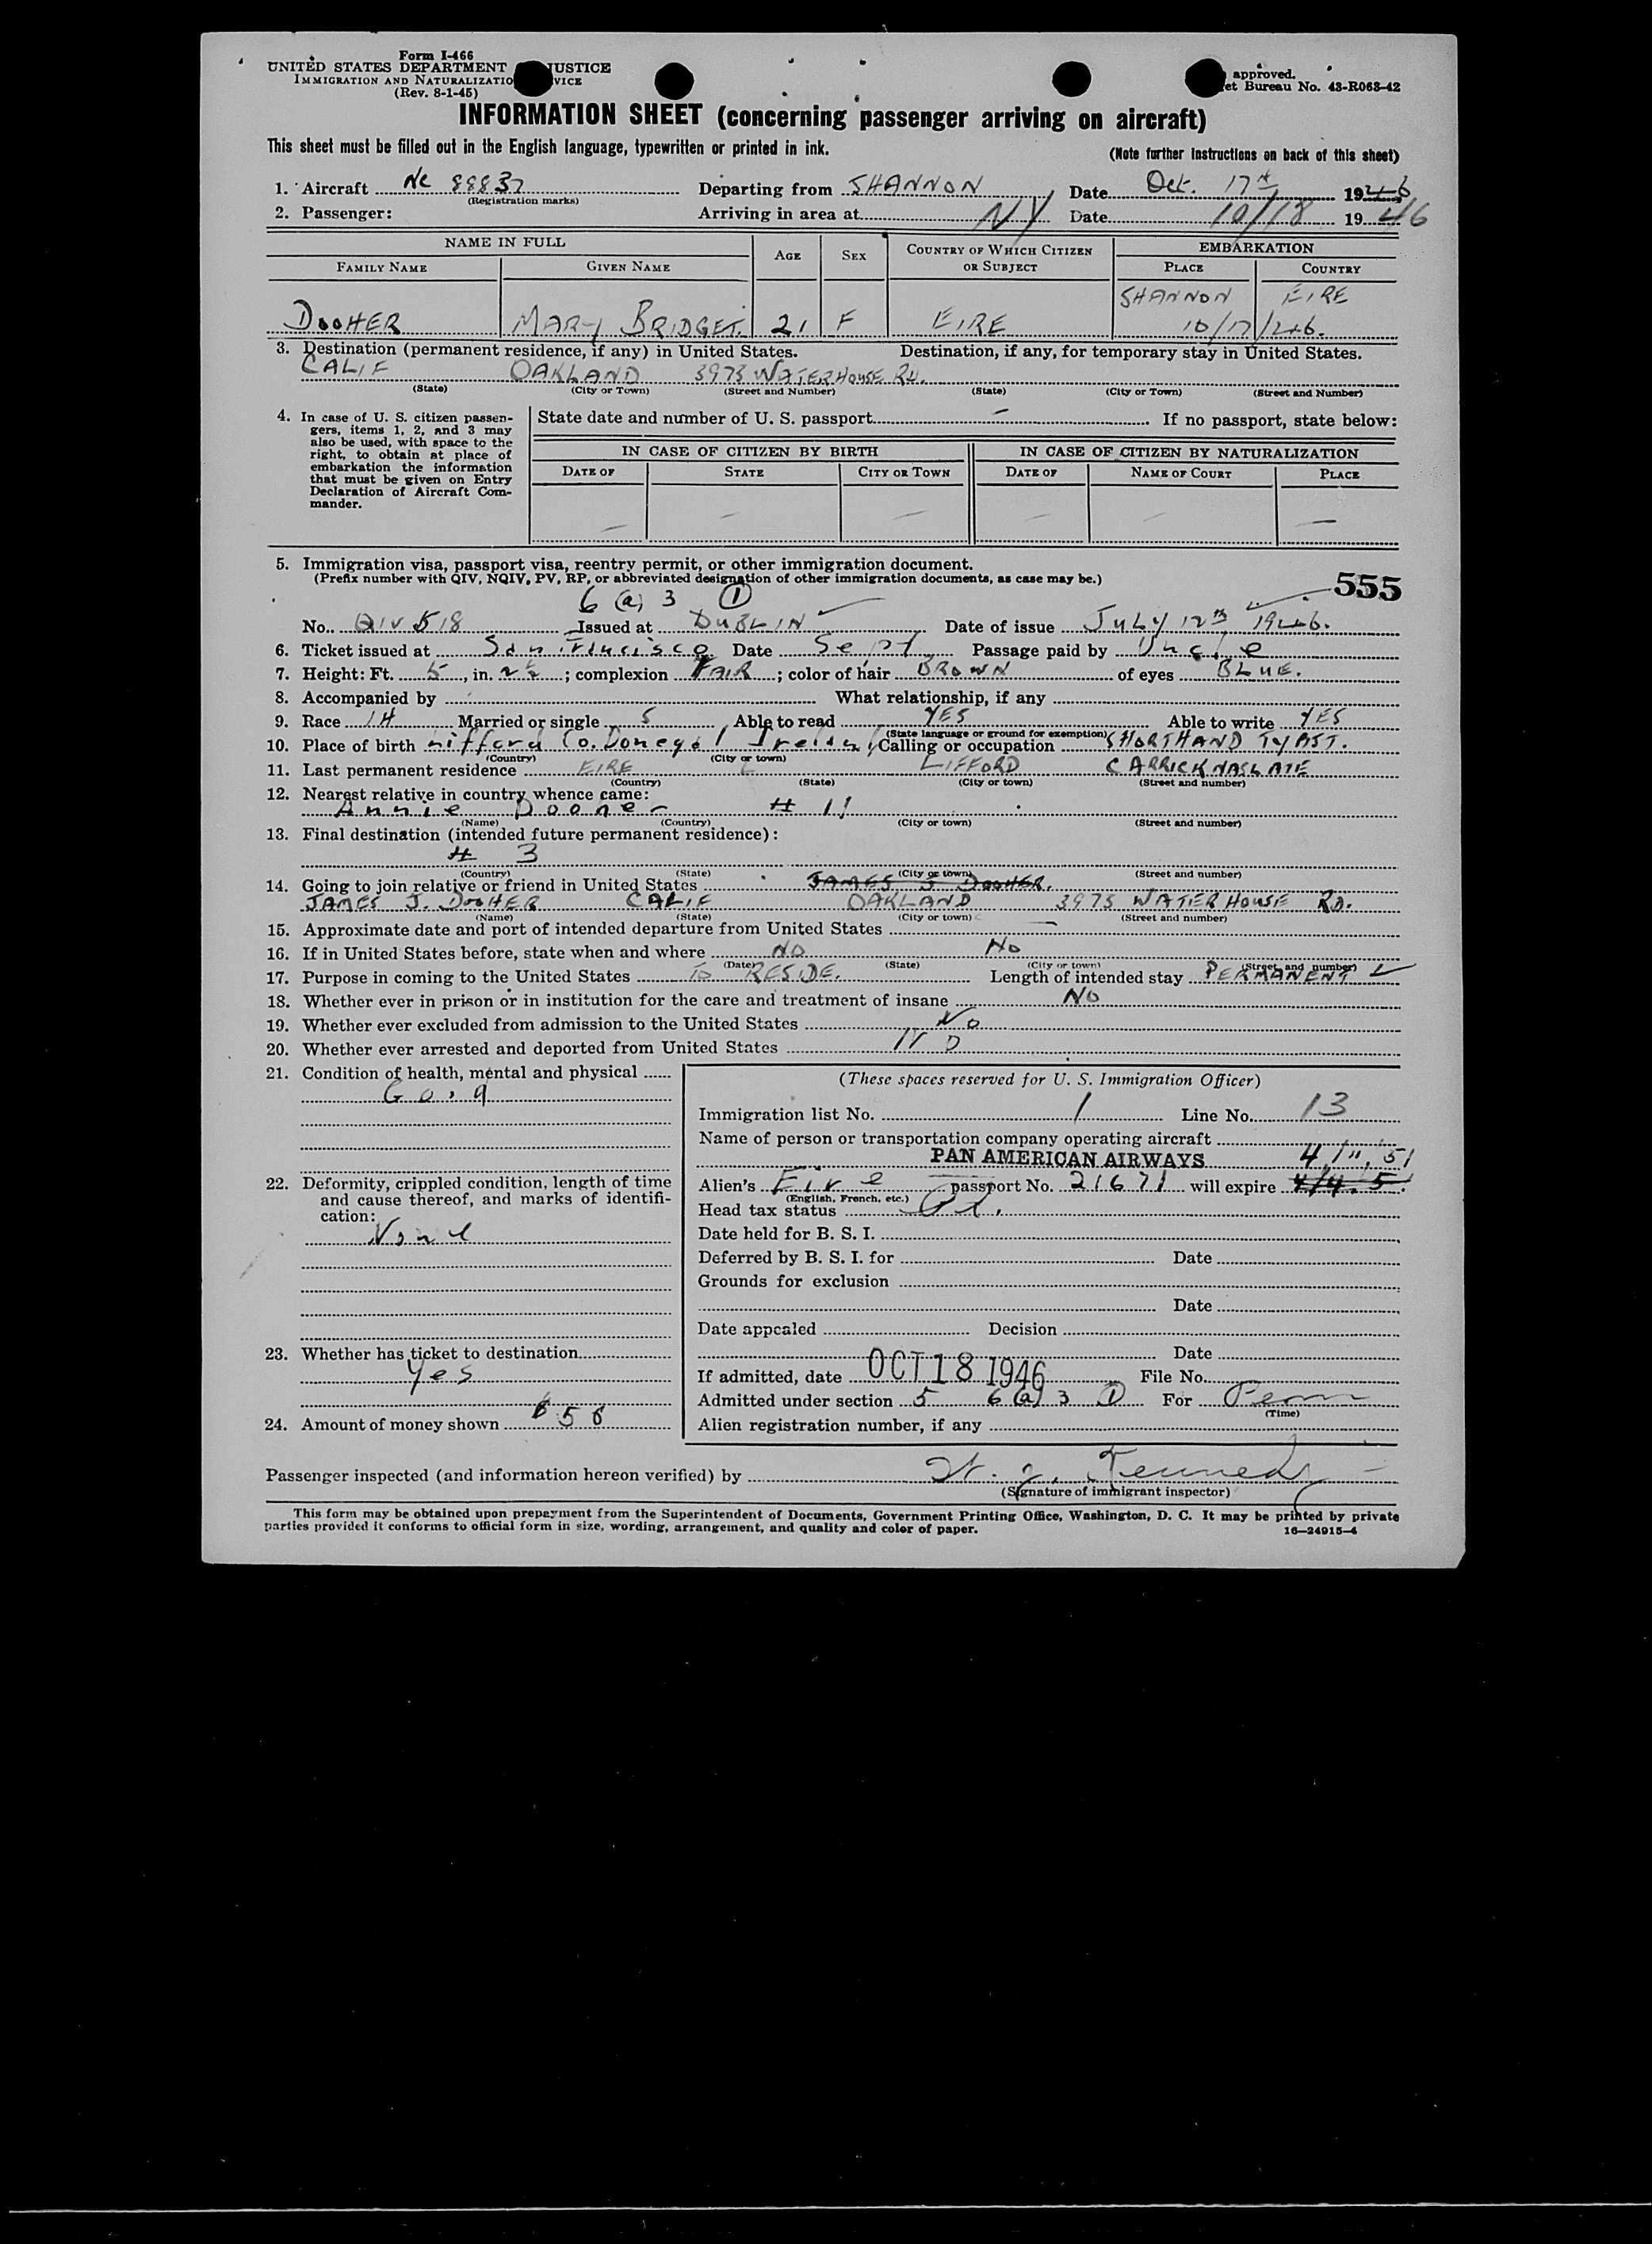 Form I-466
UNITED STATES DEPARTMENT JUSTICE
IMMIGRATION AND NATURALIZATIO VICE
(Rev. 8-1-45)
approved.
et Bureau No. 43-R063-42
INFORMATION SHEET (concerning passenger arriving on aircraft)
This sheet must be filled out in the English language, typewritten or printed in ink.
(Note further instructions on back of this sheet)
1. Aircraft NC 88837 Departing from SHANNON Date Oct. 17th 1946
(Registration marks)
2. Passenger: Arriving in area at NY Date 10/18 1946
NAME IN FULL AGE SEX COUNTRY OF WHICH CITIZEN OR SUBJECT EMBARKATION
FAMILY NAME GIVEN NAME PLACE COUNTRY
SHANNON EIRE
DOOHER MARY BRIDGET. 21 F EIRE 10/17/46.
3. Destination (permanent residence, if any) in United States. Destination, if any, for temporary stay in United States.
CALIF OAKLAND 3973 WATERHOUSE RD.
(State) (City or Town) (Street and Number) (State) (City or Town) (Street and Number)
4. In case of U. S. citizen passengers, items 1, 2, and 3 may also be used, with space to the right, to obtain at place of embarkation the information that must be given on Entry Declaration of Aircraft Commander.
State date and number of U. S. passport — If no passport, state below:
IN CASE OF CITIZEN BY BIRTH IN CASE OF CITIZEN BY NATURALIZATION
DATE OF STATE CITY OR TOWN DATE OF NAME OF COURT PLACE
— — — — — —
5. Immigration visa, passport visa, reentry permit, or other immigration document.
(Prefix number with QIV, NQIV, PV, RP, or abbreviated designation of other immigration documents, as case may be.)
555
6 (a) 3 ①
No. QIV 518 Issued at DUBLIN Date of issue JULY 12th 1946.
6. Ticket issued at San Francisco Date Sept Passage paid by Uncle
7. Height: Ft. 5, in. 2½; complexion FAIR; color of hair BROWN of eyes BLUE.
8. Accompanied by What relationship, if any
9. Race IH Married or single S Able to read YES Able to write YES
(State language or ground for exemption)
10. Place of birth Lifford Co. Donegal Ireland Calling or occupation SHORTHAND TYPIST.
(Country) (City or town)
11. Last permanent residence EIRE LIFFORD CARRICKNASLATE
(Country) (State) (City or town) (Street and number)
12. Nearest relative in country whence came:
Annie Dooher # 11
(Name) (Country) (City or town) (Street and number)
13. Final destination (intended future permanent residence):
# 3
(Country) (State) (City or town) (Street and number)
14. Going to join relative or friend in United States JAMES J DOOHER.
JAMES J. DOOHER CALIF OAKLAND 3975 WATERHOUSE RD.
(Name) (State) (City or town) (Street and number)
15. Approximate date and port of intended departure from United States —
16. If in United States before, state when and where NO NO
(Date) (State) (City or town) (Street and number)
17. Purpose in coming to the United States TO RESIDE. Length of intended stay PERMANENT
18. Whether ever in prison or in institution for the care and treatment of insane NO
19. Whether ever excluded from admission to the United States No
20. Whether ever arrested and deported from United States NO
21. Condition of health, mental and physical
Good
22. Deformity, crippled condition, length of time and cause thereof, and marks of identification:
None
23. Whether has ticket to destination
Yes
24. Amount of money shown
(These spaces reserved for U. S. Immigration Officer)
Immigration list No. 1 Line No. 13
Name of person or transportation company operating aircraft
PAN AMERICAN AIRWAYS 4/11/51
Alien's Eire passport No. 21671 will expire
(English, French, etc.)
Head tax status Pd.
Date held for B. S. I.
Deferred by B. S. I. for Date
Grounds for exclusion
Date
Date appealed Decision
Date
If admitted, date OCT 18 1946 File No.
Admitted under section 5 6 (a) 3 ① For Perm
(Time)
Alien registration number, if any
Passenger inspected (and information hereon verified) by Kennedy
(Signature of immigrant inspector)
This form may be obtained upon prepayment from the Superintendent of Documents, Government Printing Office, Washington, D. C. It may be printed by private
parties provided it conforms to official form in size, wording, arrangement, and quality and color of paper.
16—24915-4